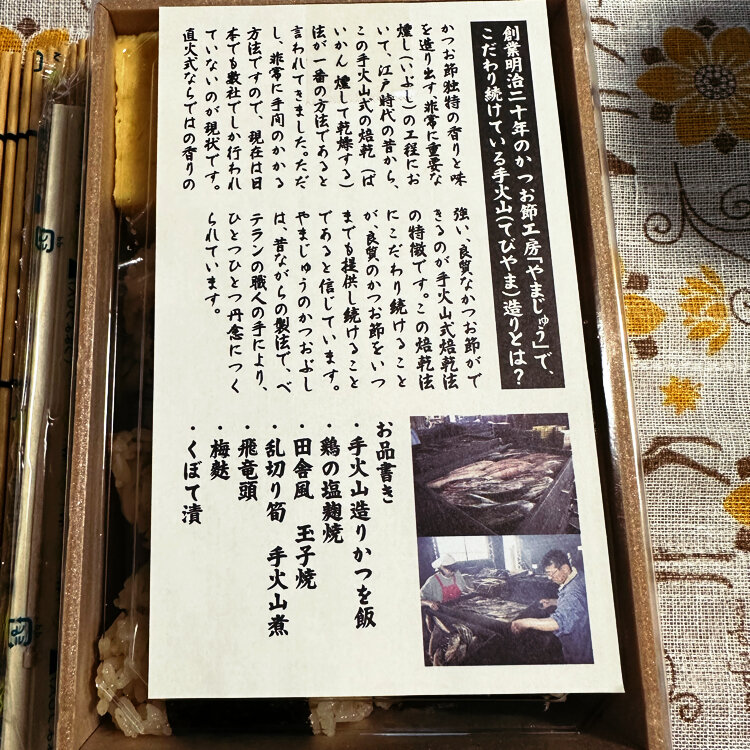 創業明治二十年のかつお節工房「やまじゅう」で、
こだわり続けている手火山(てびやま)造りとは？
かつお節独特の香りと味
を造り出す、非常に重要な
燻し(いぶし)の工程にお
いて、江戸時代の昔から、
この手火山式の焙乾(ば
いかん　燻して乾燥する)
法が一番の方法であると
言われてきました。ただ
し、非常に手間のかかる
方法ですので、現在は日
本でも数社でしか行われ
ていないのが現状です。
直火式ならではの香りの
強い、良質なかつお節がで
きるのが手火山式焙乾法
の特徴です。この焙乾法
にこだわり続けること
が、良質のかつお節をいつ
までも提供し続けること
であると信じています。
やまじゅうのかつおぶし
は、昔ながらの製法で、ベ
テランの職人の手により、
ひとつひとつ丹念につく
られています。
お品書き
・手火山造りかつを飯
・鶏の塩麹焼
・田舎風　玉子焼
・乱切り筍　手火山煮
・飛竜頭
・梅麩
・くぼて漬